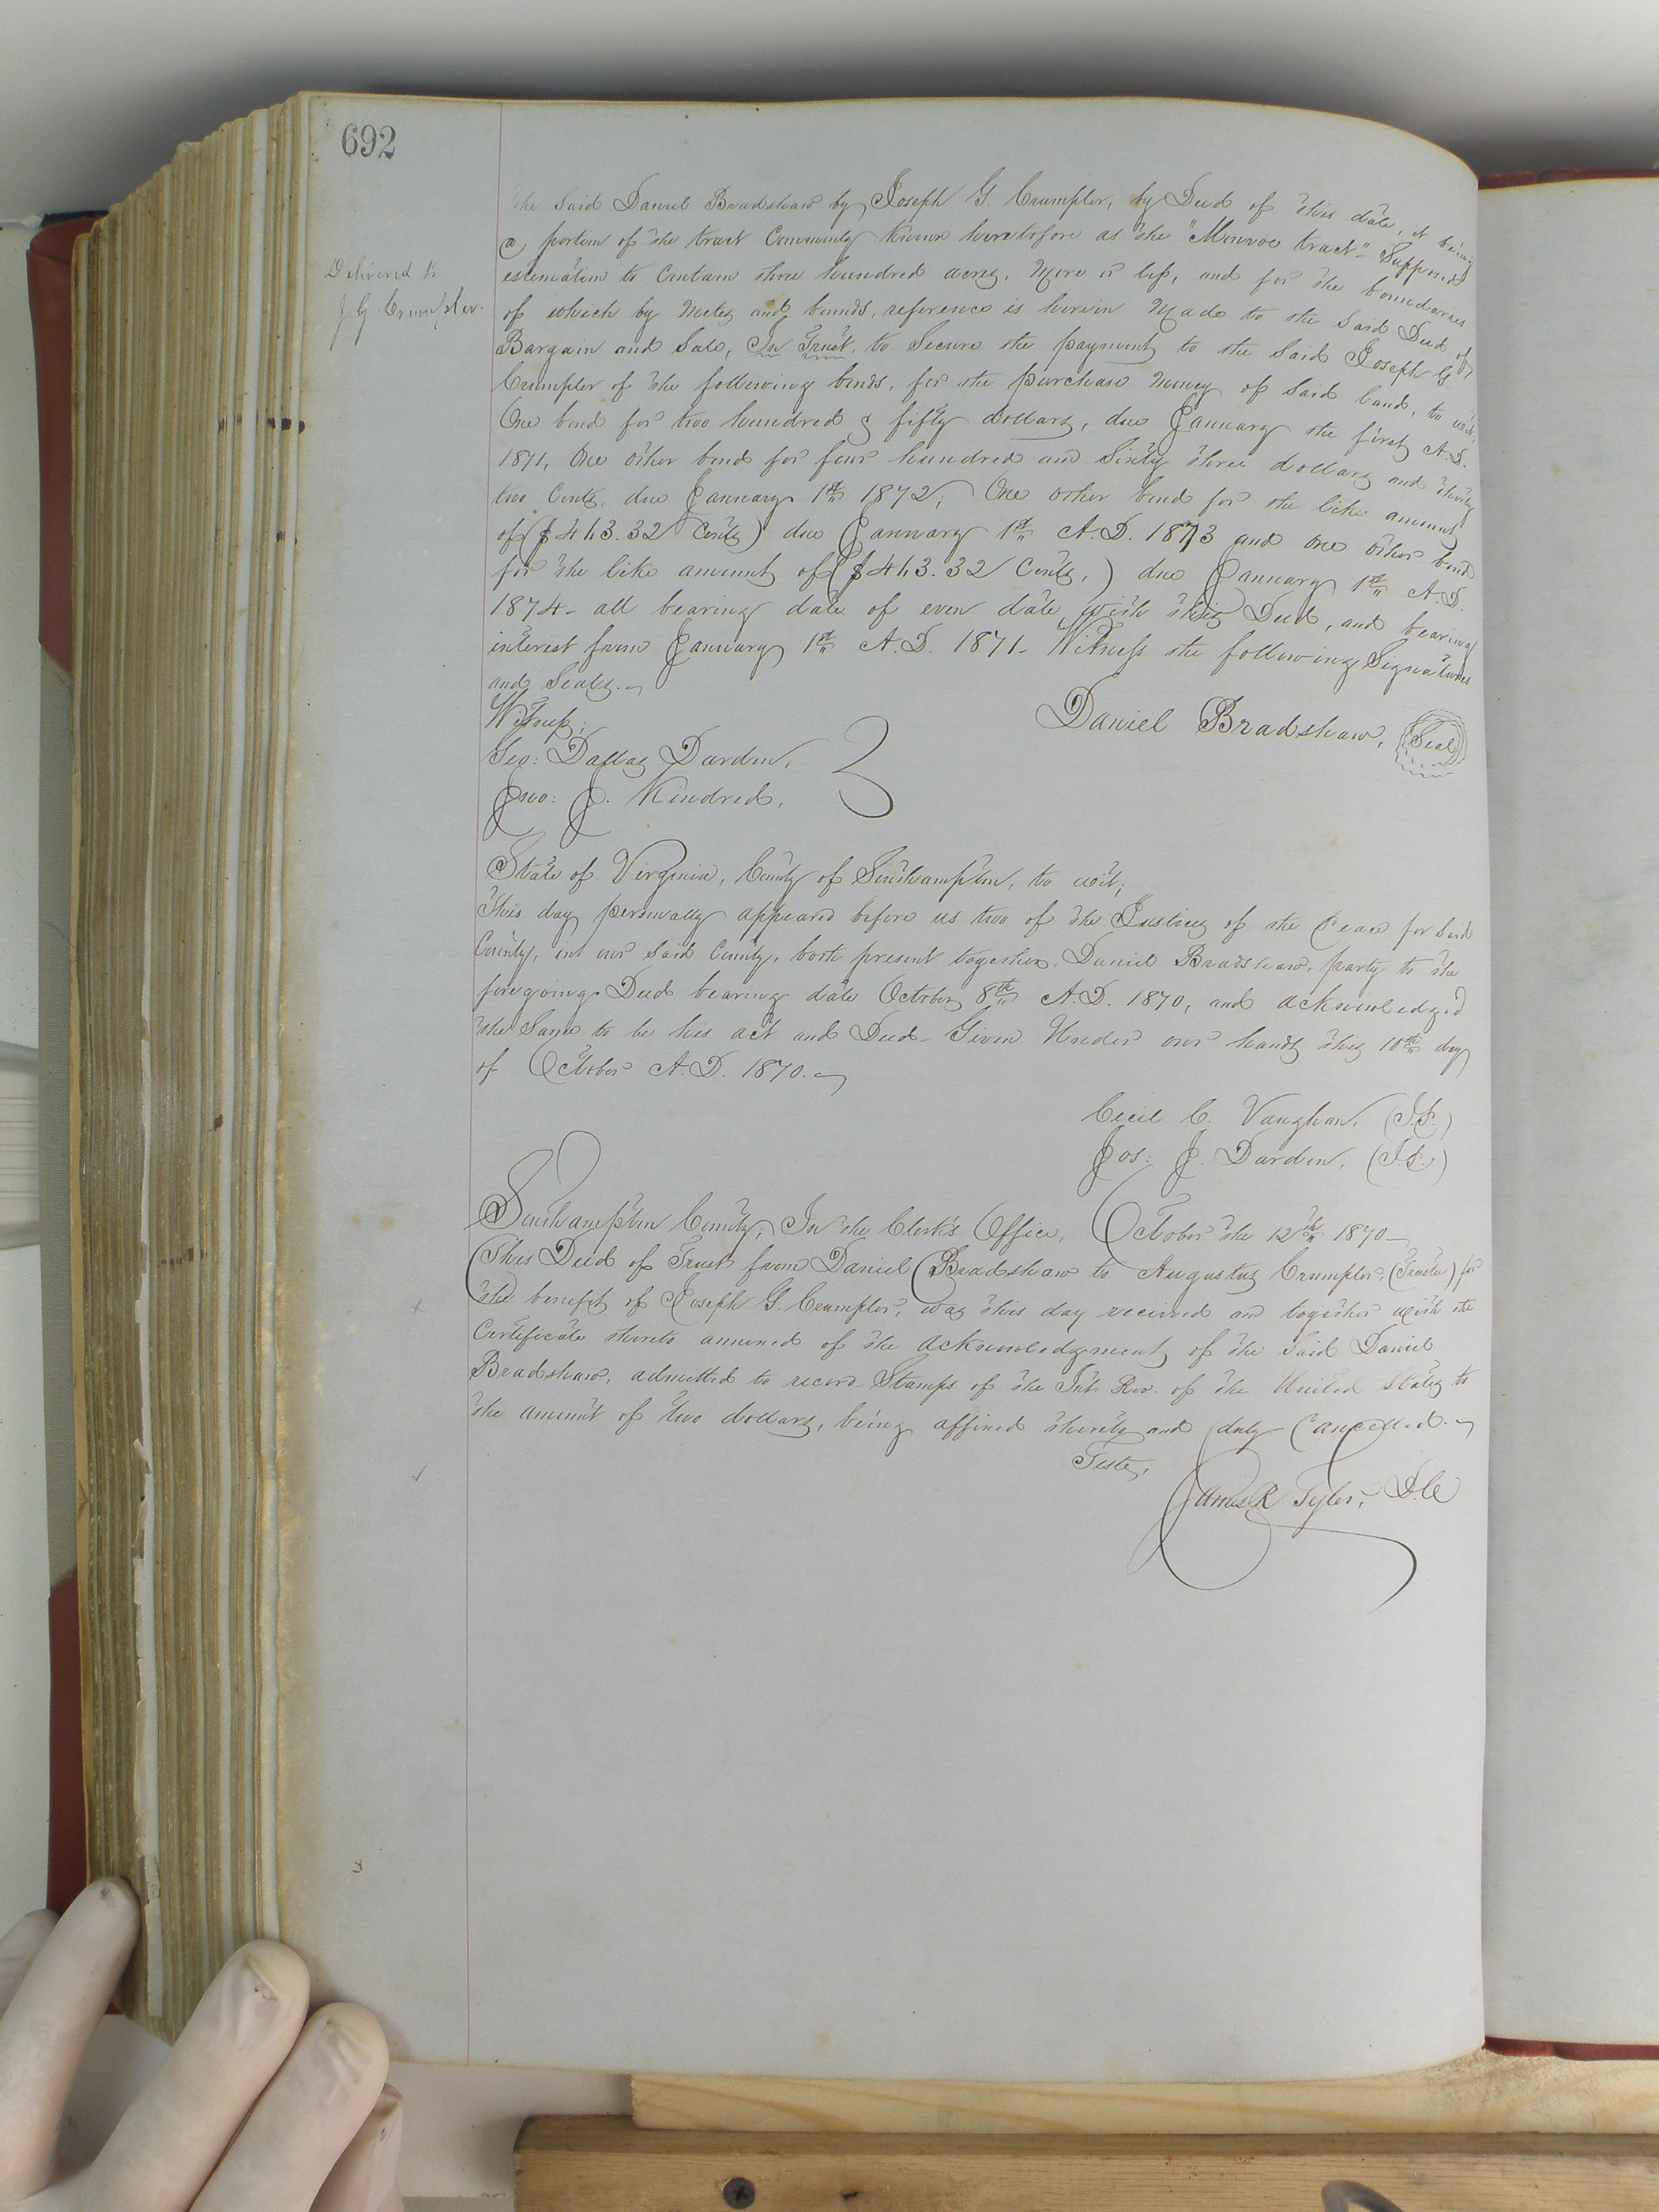 692
Delivered to
J. G. Crumpler.
the Said Daniel Bradshaw by Joseph G. Crumpler, by Deed of this date, it being
a portion of the tract Commonly known heretofore as the "Monroe tract" Supposed
estimation to Contain three hundred acres, More or less, and for the boundaries
of which by Metes and bounds, reference is herein Made to the Said Deed of
Bargain and Sale, In Trust, to Secure the payment to the Said Joseph G.
Crumpler of the following bonds, for the purchase money of Said land, to wit,
One bond for two hundred & fifty dollars, due January the first A.D.
1871, One other bond for four hundred and Sixty three dollars and thirty
two Cents, due January 1st 1872; One other bond for the like amount
of ($463.32 Cents) due January 1st A.D. 1873 and one other bond
for the like amount of ($463.32 Cents,) due January 1st A.D.
1874- all bearing date of even date with this Deed, and bearing
interest from January 1st A.D. 1871- Witness the following Signatures
and Seals.
Witness;
Daniel Bradshaw, (Seal)
Geo: Dallas Darden,
Jno: J. Kindred,
State of Virginia, County of Southampton, to wit;
This day personally appeared before us two of the Justices of the Peace for Said
County, in our Said County, both present together, Daniel Bradshaw, party to the
foregoing Deed bearing date October 8th A.D. 1870, and acknowledged
the Same to be his act and Deed- Given Under our hands this 10th day
of October A.D. 1870.
Cecil C. Vaughan, (J.P.)
Jos: J. Darden, (J.P.)
Southampton County; In the Clerk's Office, October the 12th 1870-
This Deed of Trust from Daniel Bradshaw to Augustus Crumpler, (Trustee) for
the benefit of Joseph G. Crumpler, was this day received and together with the
Certificate thereto annexed of the acknowledgment of the Said Daniel
Bradshaw, admitted to record- Stamps of the Int. Rev. of the United States to
the amount of two dollars, being affixed thereto and duly Cancelled.
Teste,
James R Tyler, D.C